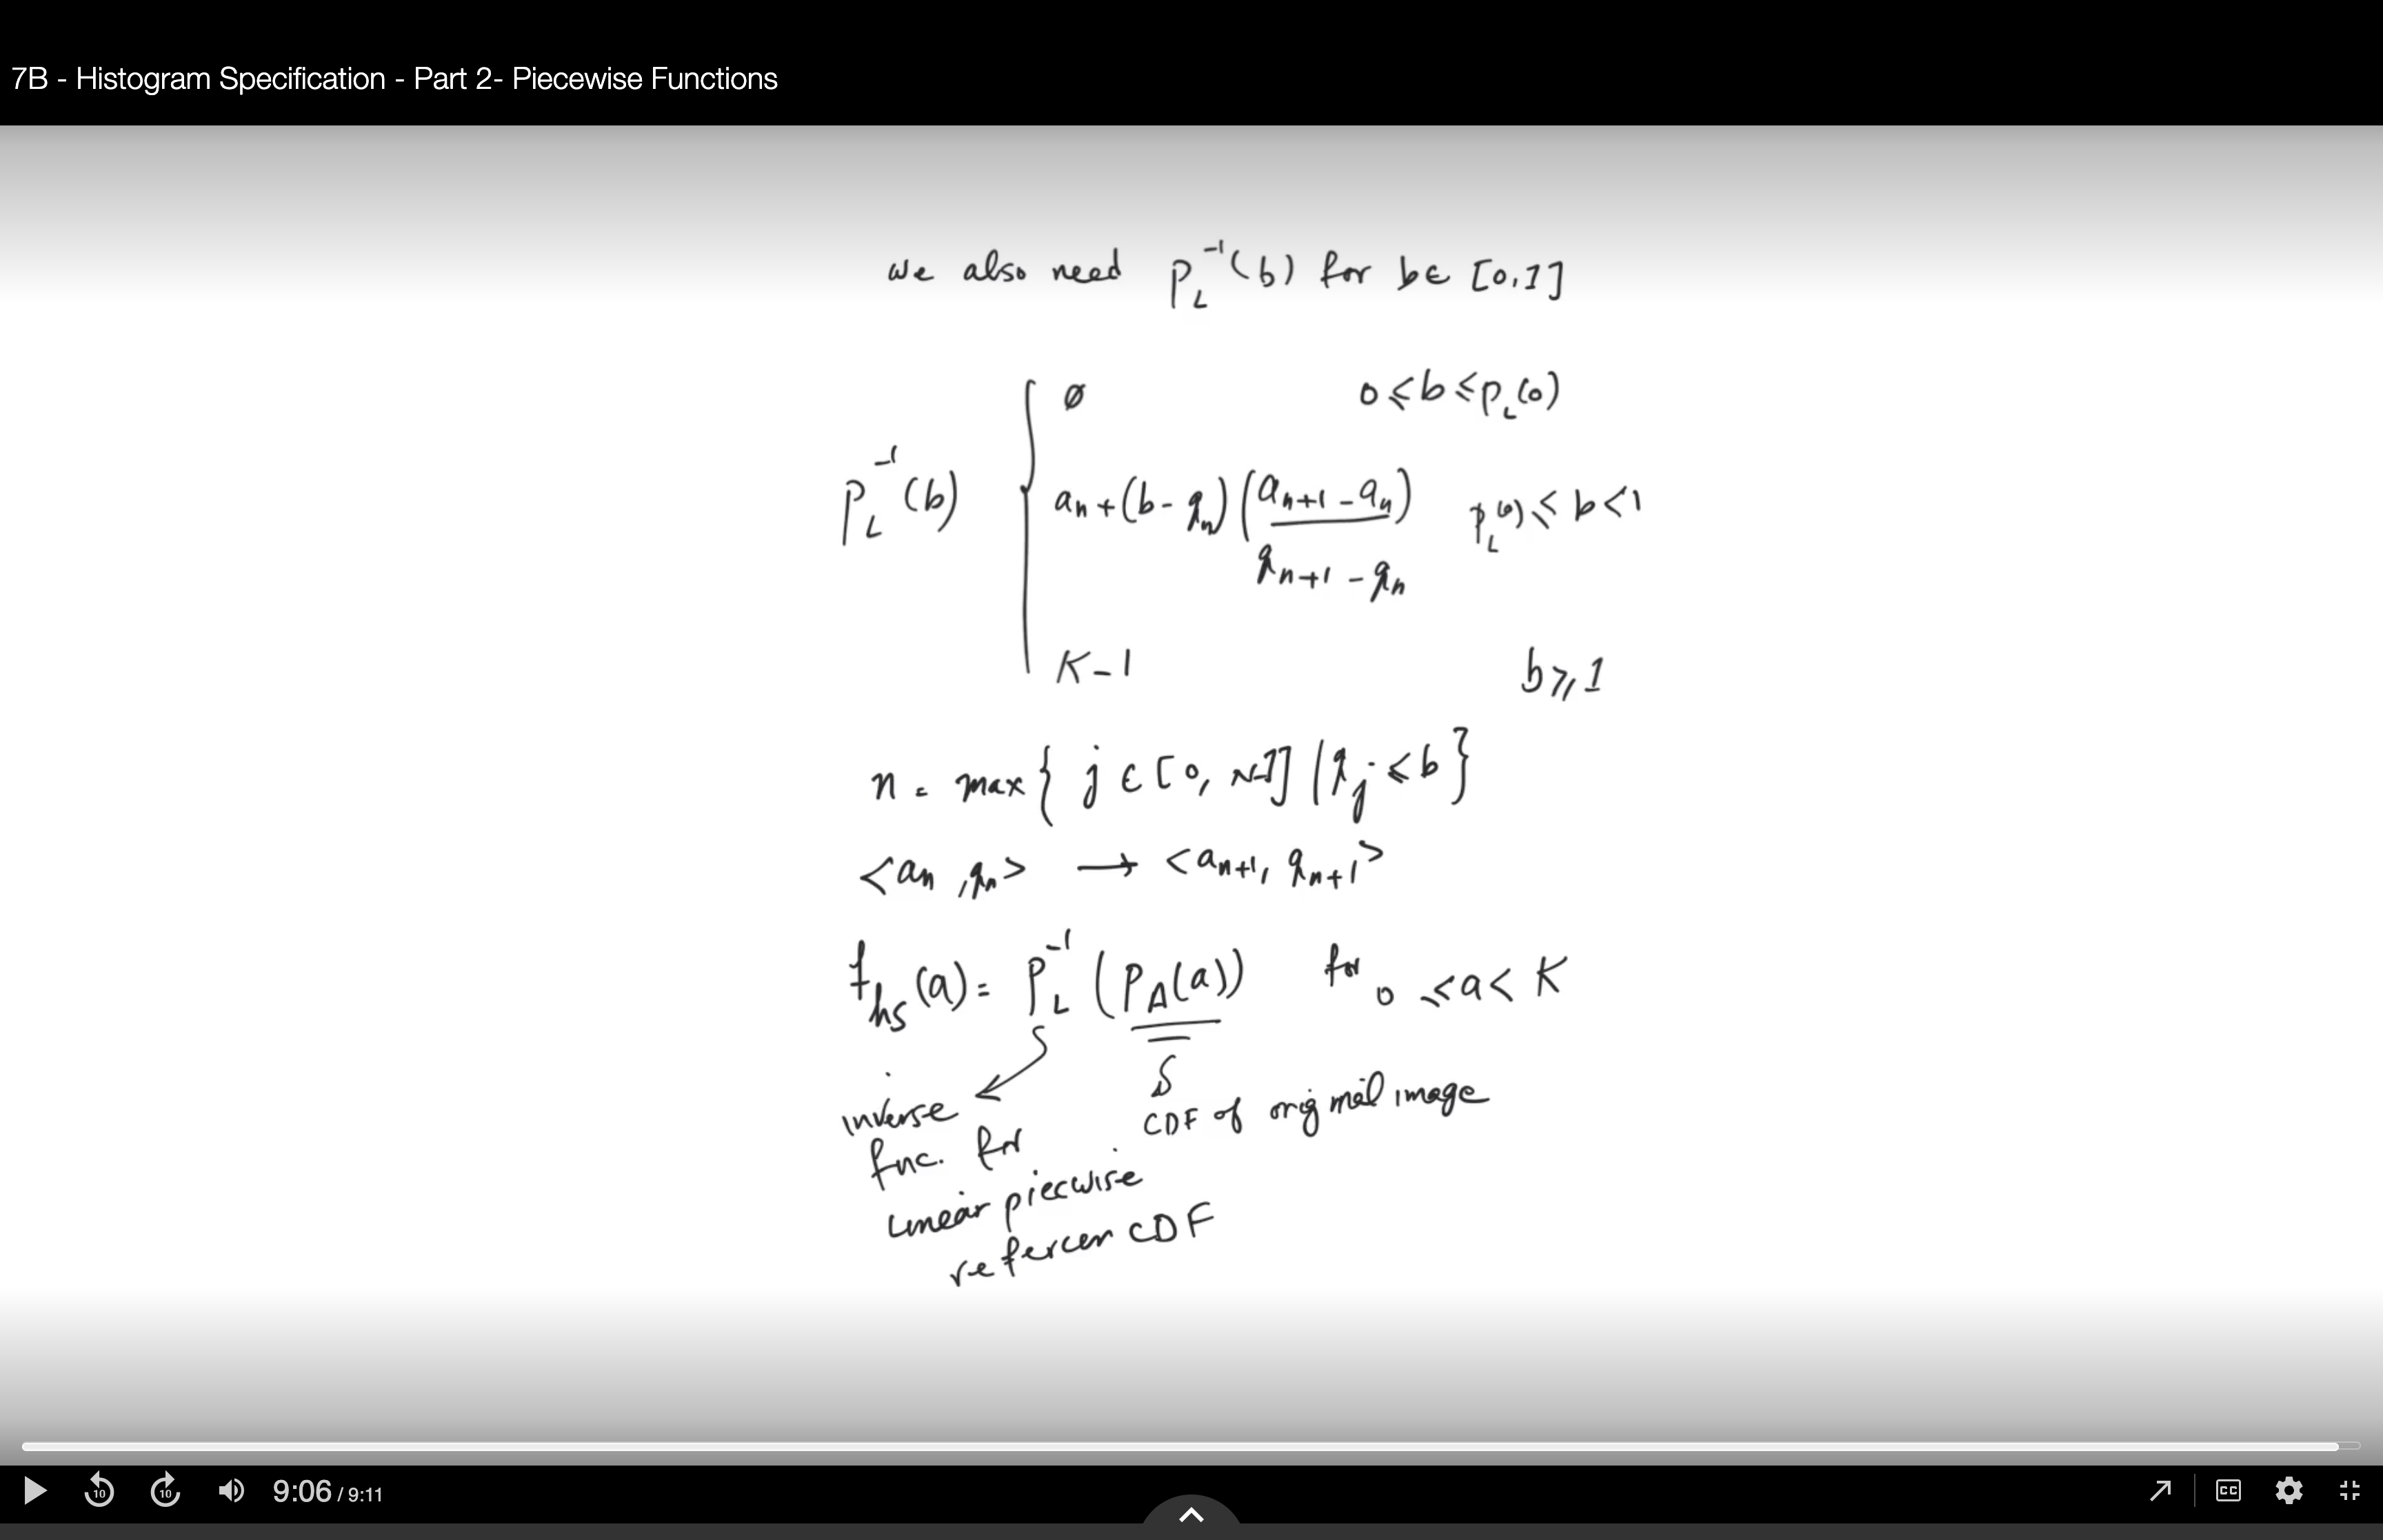 7B - Histogram Specification - Part 2- Piecewise Functions
we also need P_L^{-1}(b) for b ∈ [0,1]
P_L^{-1}(b) {
∅ 0 ≤ b ≤ P_L(0)
a_n + (b - q_n) ((a_{n+1} - a_n) / (q_{n+1} - q_n)) P_L(0) ≤ b < 1
K-1 b ≥ 1
n = max { j ∈ [0, N-1] | q_j ≤ b }
<a_n, q_n> → <a_{n+1}, q_{n+1}>
f_hs(a) = P_L^{-1}(P_A(a)) for 0 ≤ a < K
CDF of original image
inverse
func. for
linear piecwise
refercen CDF
10 10 9:06 / 9:11 CC